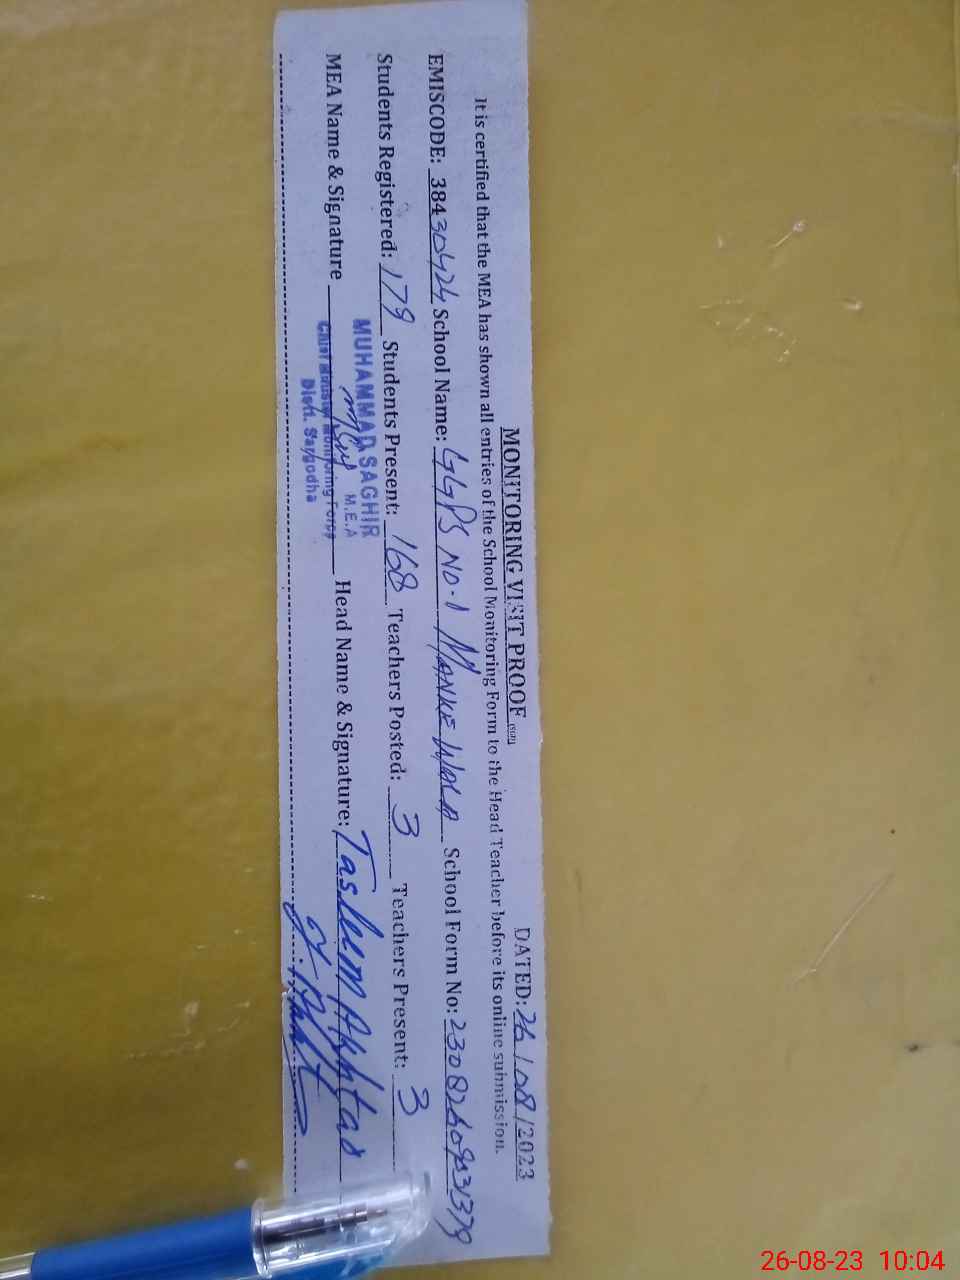 MONITORING VISIT PROOF (SED) DATED: 26/08/2023
It is certified that the MEA has shown all entries of the School Monitoring Form to the Head Teacher before its online submission.
EMISCODE: 38430424 School Name: GGPS NO-1 MANKE WALA School Form No:
Students Registered: 179 Students Present: 168 Teachers Posted: 3 Teachers Present: 3
MEA Name & Signature Head Name & Signature: Tasleem Akhtar
MUHAMMAD SAGHIR
M.E.A
Chief Minister Monitoring Force
Distt. Sargodha
26-08-23 10:04